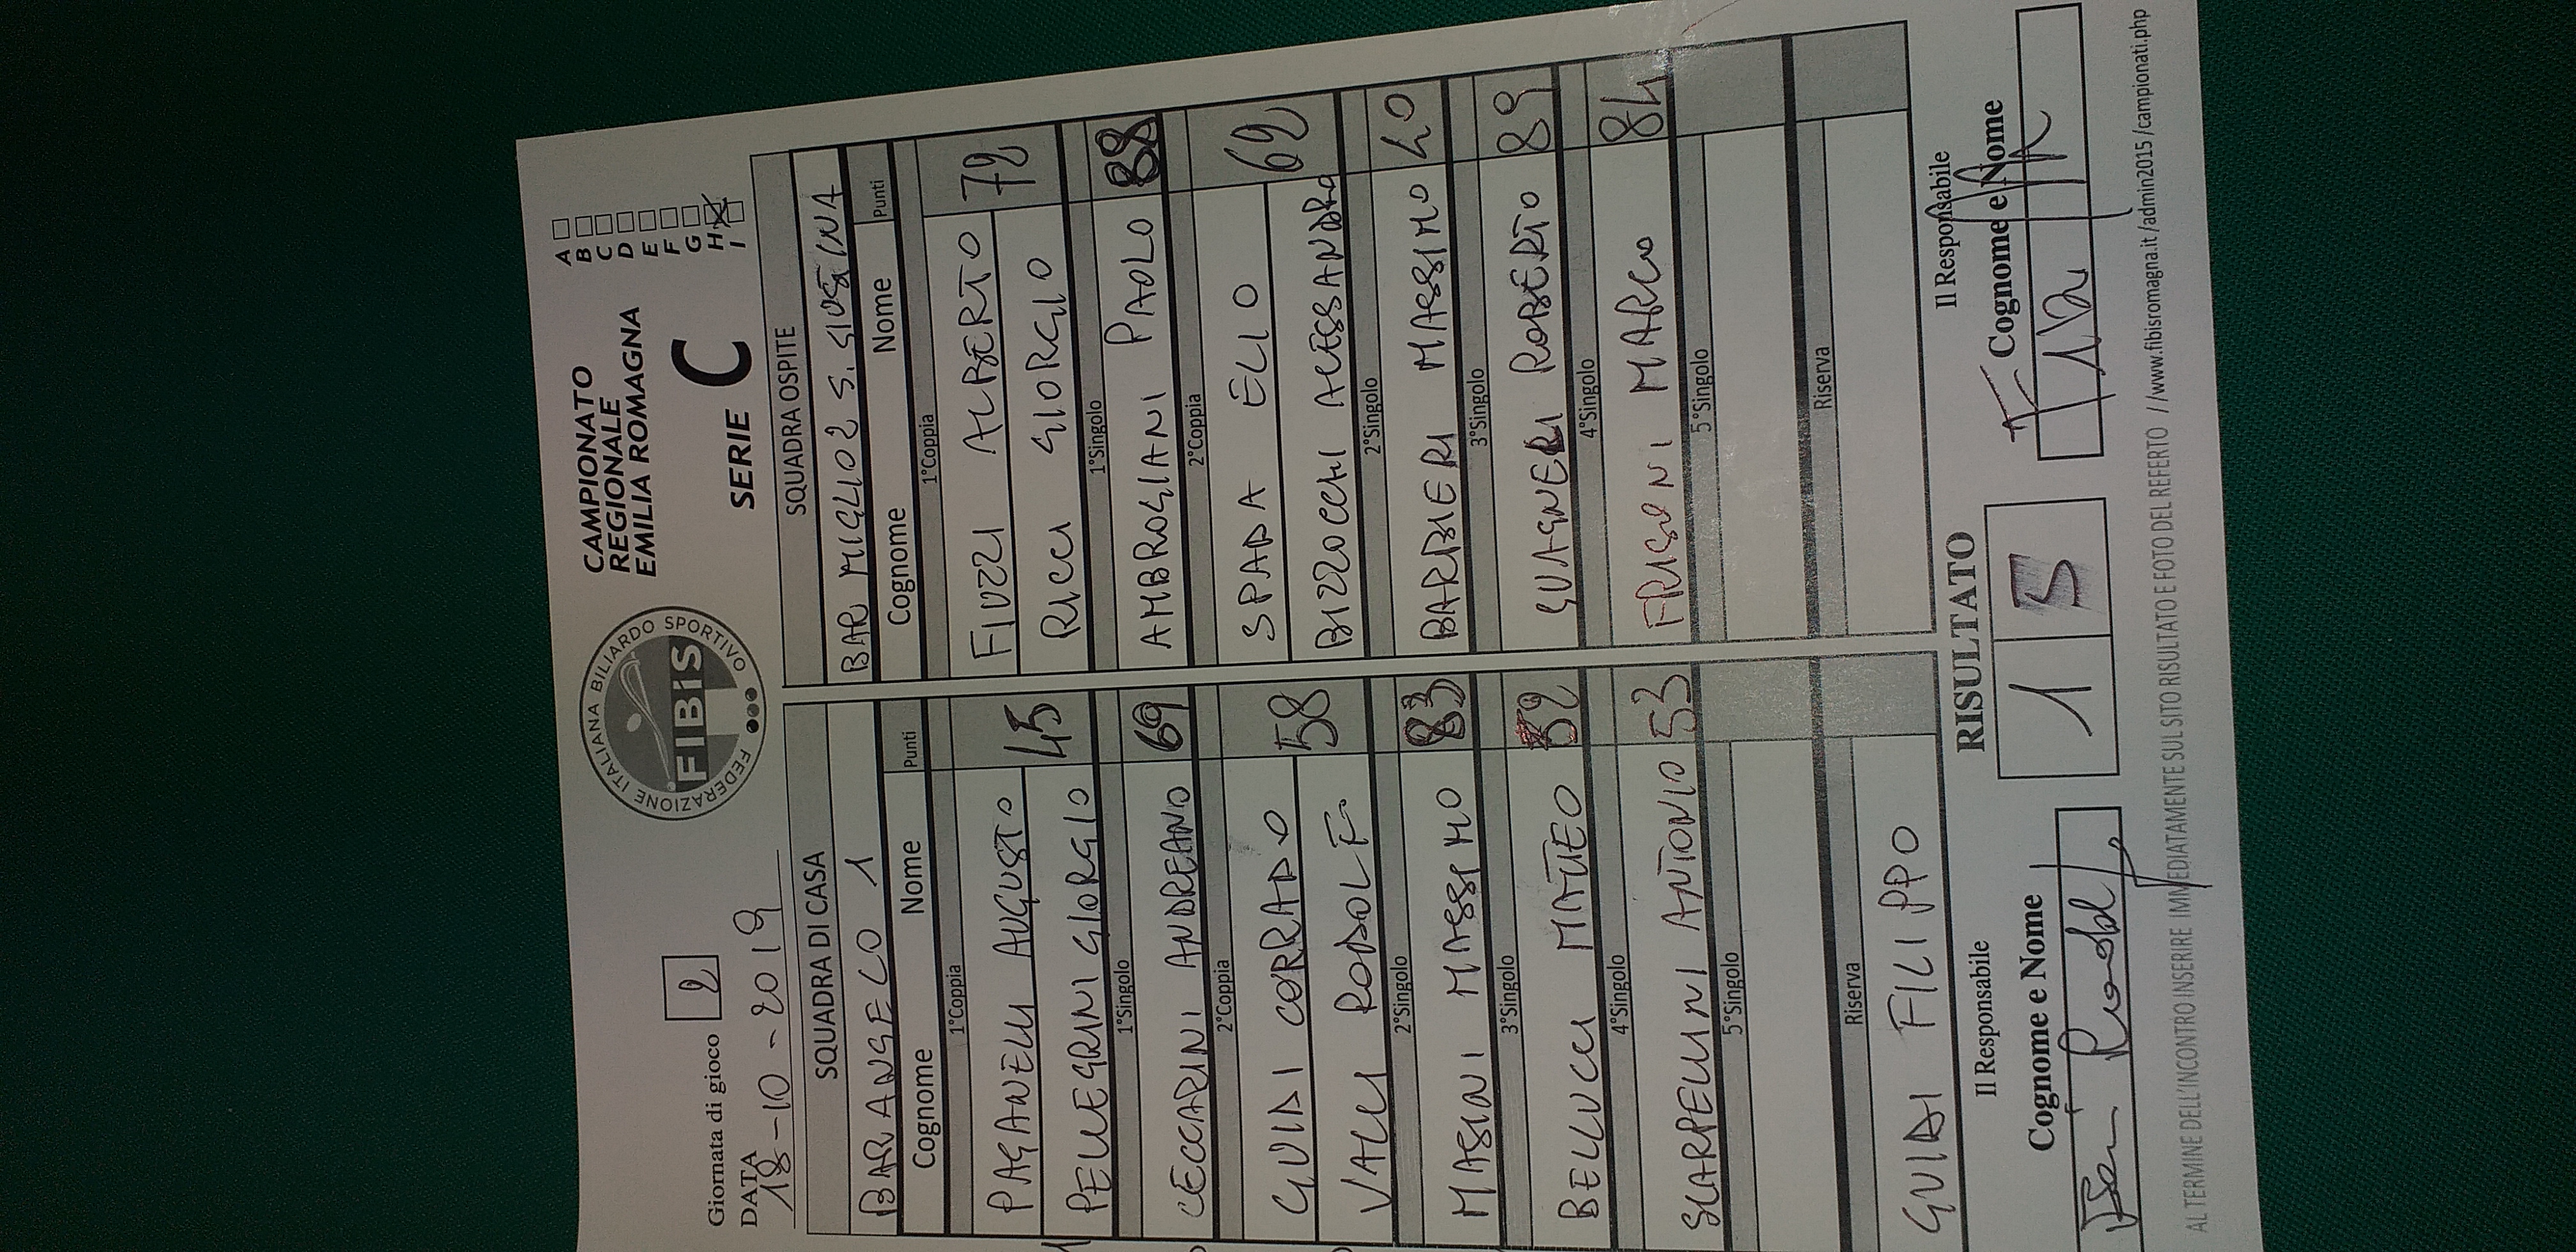 Giornata di gioco 2
DATA
18-10-2019
FEDERAZIONE ITALIANA BILIARDO SPORTIVO
FIBiS
CAMPIONATO
REGIONALE
EMILIA ROMAGNA
SERIE C
A
B
C
D
E
F
G
H
I
SQUADRA DI CASA
BAR ANGELO 1
Cognome Nome Punti
1°Coppia
PAGANELLI AUGUSTO
PELLEGRINI GIORGIO 45
1°Singolo
CECCARINI ANDREANO 69
2°Coppia
GUIDI CORRADO
VALLI RODOLF. 58
2°Singolo
MASINI MASSIMO 83
3°Singolo
BELLUCCI MATTEO 52
4°Singolo
SCARPELLINI ANTONIO 53
5°Singolo
Riserva
GUIDI FILIPPO
SQUADRA OSPITE
BAR MIGLIO 2 S. GIUSTINA
Cognome Nome Punti
1°Coppia
FIUZZI ALBERTO 72
RICCI GIORGIO
1°Singolo
AMBROGIANI PAOLO 88
2°Coppia
SPADA ELIO 62
BIZZOCCHI ALESSANDRO
2°Singolo
BARBIERI MASSIMO 40
3°Singolo
GUAGNELI ROBERTO 89
4°Singolo
FRISONI MARCO 84
5°Singolo
Riserva
Il Responsabile
Cognome e Nome
RISULTATO
1 5
Il Responsabile
Cognome e Nome
AL TERMINE DELL'INCONTRO INSERIRE IMMEDIATAMENTE SUL SITO RISULTATO E FOTO DEL REFERTO //www.fibisromagna.it/admin2015/campionati.php